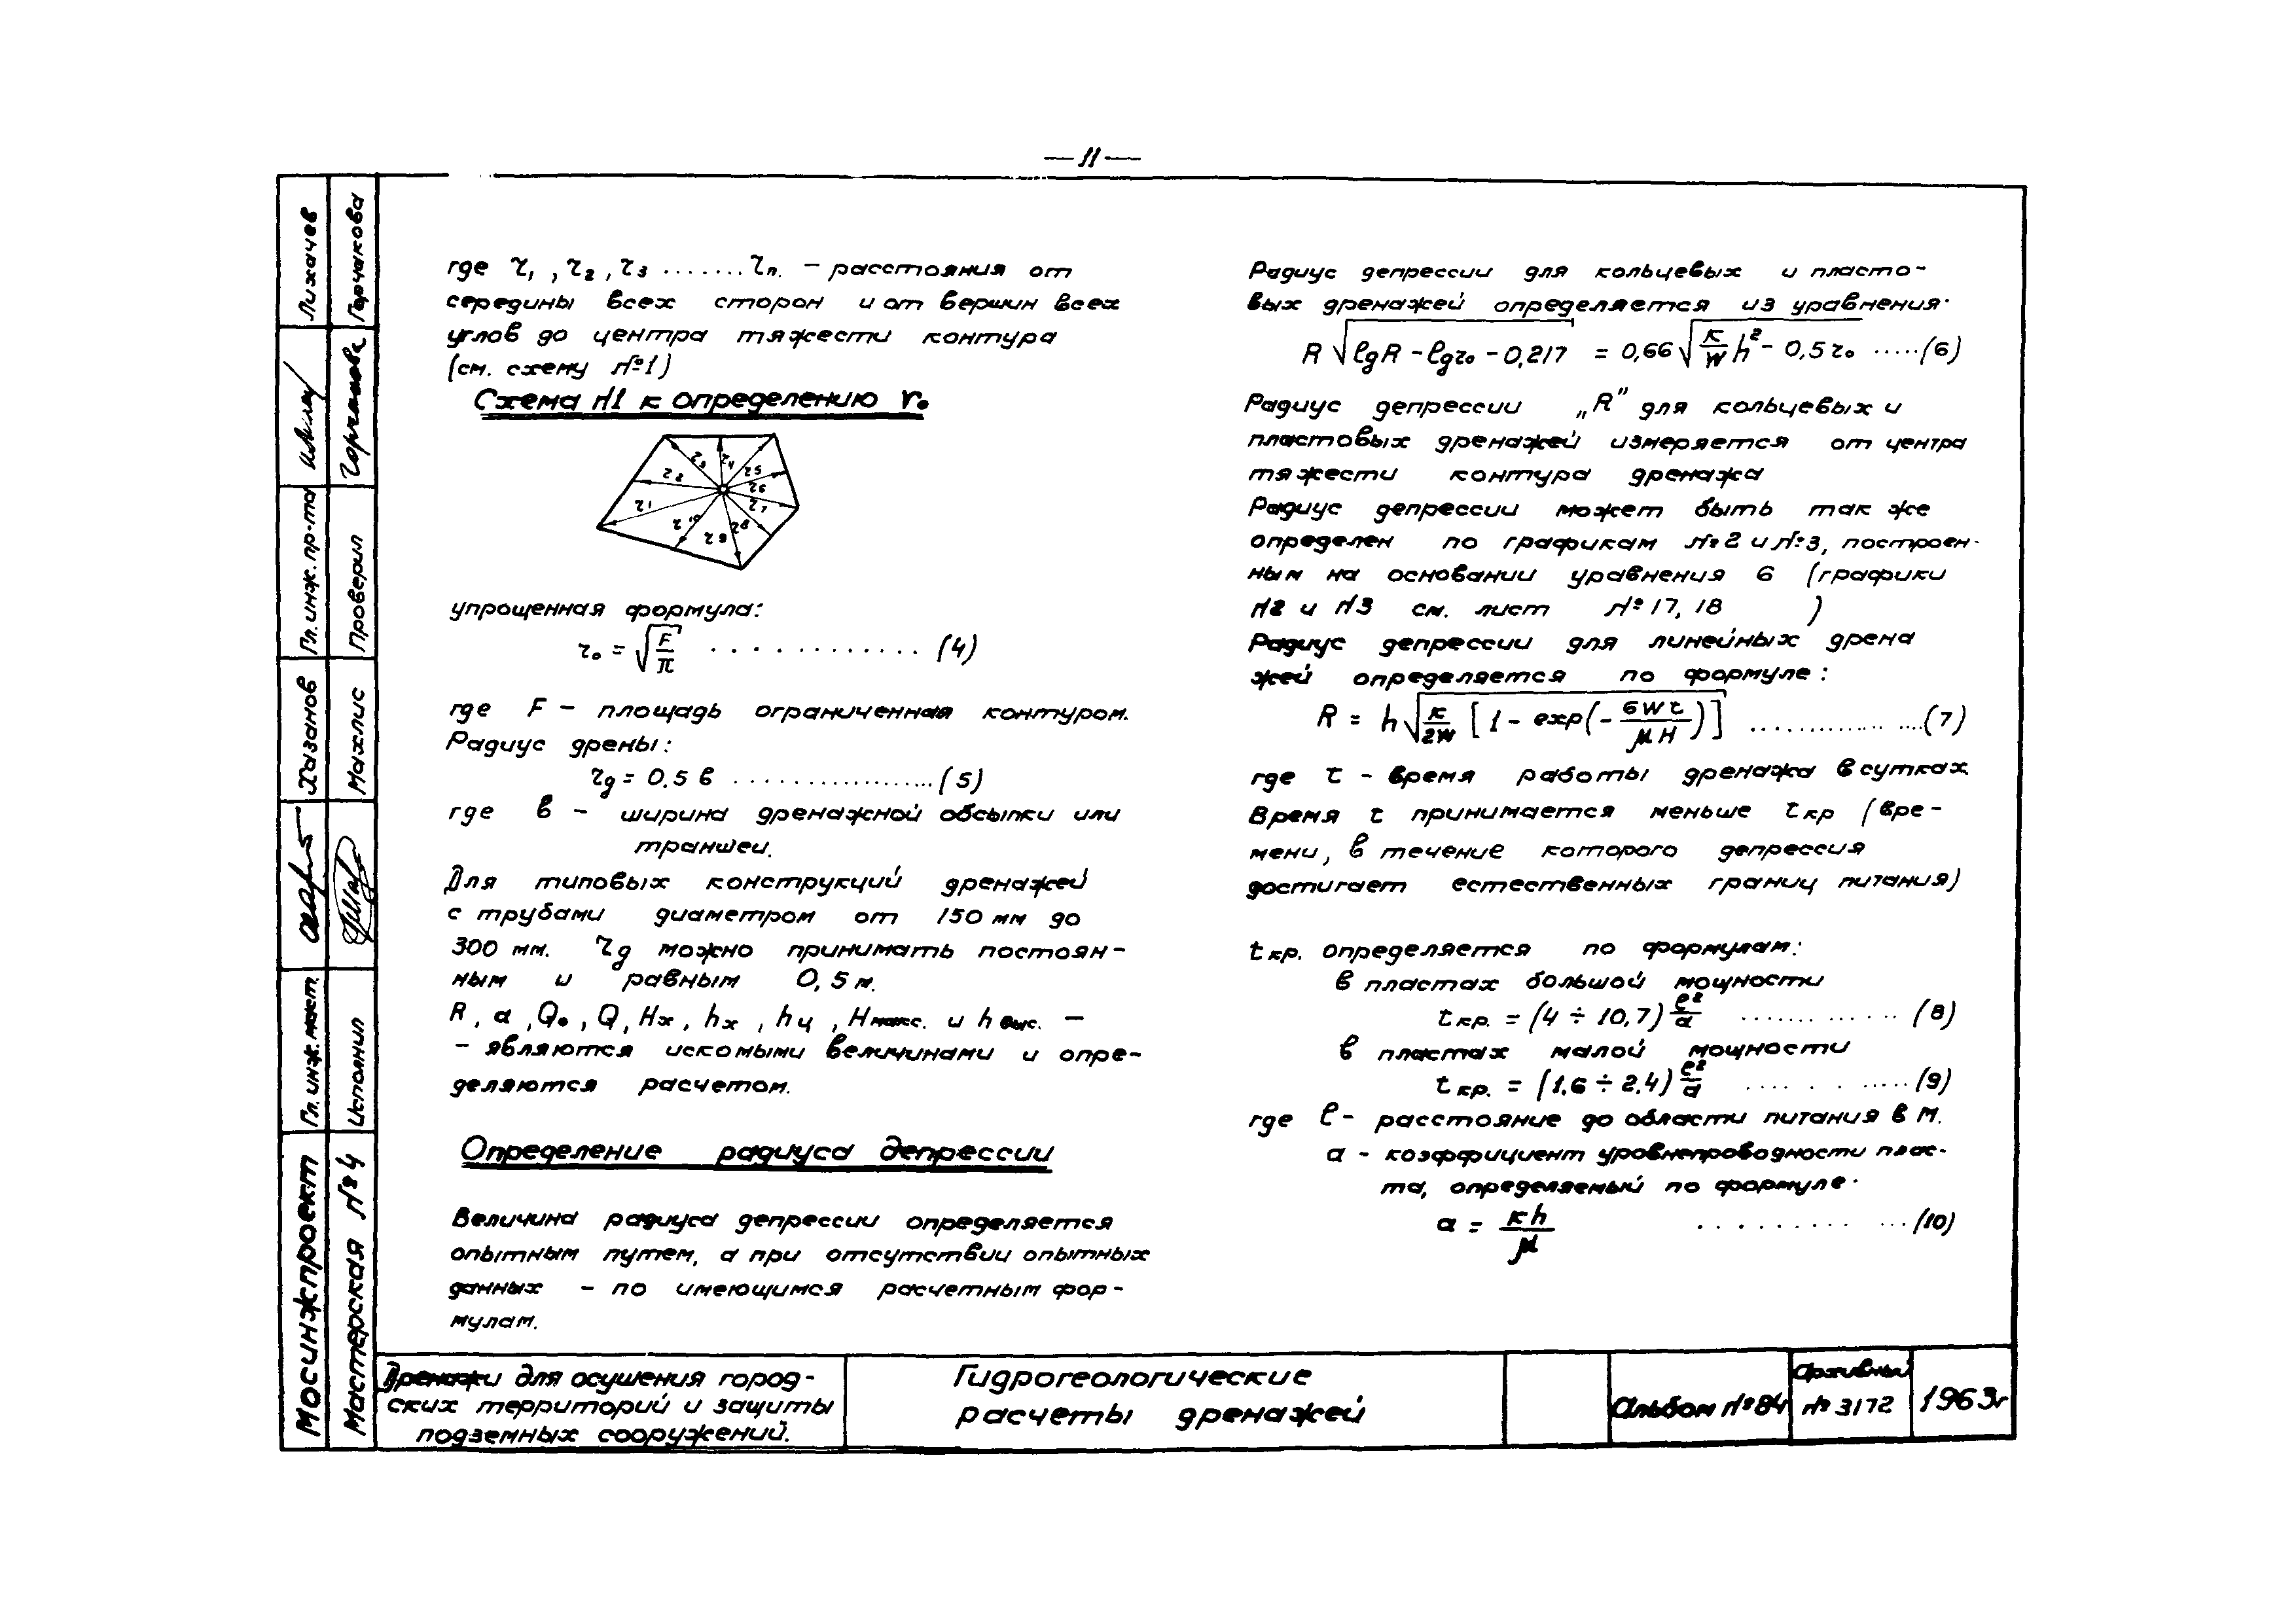 — 11 —
где τ₁, τ₂, τ₃ ....... τп. – расстояния от
середины всех сторон и от вершин всех
углов до центра тяжести контура
(см. схему №1)
Схема №1 к определению r₀
τ1
τ2
τ3
τ4
τ5
τ6
τ7
τ8
τ9
τ10
упрощенная формула:
τ₀ = √(F/π) ............ (4)
где F – площадь ограниченная контуром.
Радиус дрены:
τд = 0.5 в .................. (5)
где в – ширина дренажной обсыпки или
траншеи.
Для типовых конструкций дренажей
с трубами диаметром от 150 мм до
300 мм. τд можно принимать постоян-
ным и равным 0,5 м.
R, а, Q₀, Q, Hх, hх, hц, Hмакс. и hвыс. –
– являются искомыми величинами и опре-
деляются расчетом.
Определение радиуса депрессии
Величина радиуса депрессии определяется
опытным путем, а при отсутствии опытных
данных – по имеющимся расчетным фор-
мулам.
Радиус депрессии для кольцевых и пласто-
вых дренажей определяется из уравнения.
R √(lgR – lgτ₀ – 0,217) = 0,66 √(к/W h² – 0,5 τ₀ ..... (6)
Радиус депрессии „R" для кольцевых и
пластовых дренажей измеряется от центра
тяжести контура дренажа
Радиус депрессии может быть так же
определен по графикам №2 и №3, построен-
ным на основании уравнения 6 (графики
№2 и №3 см. лист №17, 18 )
Радиус депрессии для линейных дрена
жей определяется по формуле:
R = h √(к/2W [1 – exp(– 6Wt/μH)]) .................. (7)
где t – время работы дренажа в сутках
Время t принимается меньше tкр (вре-
мени, в течение которого депрессия
достигает естественных границ питания)
tкр. определяется по формулам:
в пластах большой мощности
tкр. = (4 ÷ 10,7) ℓ²/а .............. (8)
в пластах малой мощности
tкр. = (1.6 ÷ 2.4) ℓ²/а ............ (9)
где ℓ – расстояние до области питания в м.
а – коэффициент уровнепроводности плас-
та, определяемый по формуле.
а = кh/μ ............ (10)
Лихачев
Горчакова
Горчакова
Гл. инж. пр-та
Проверил
Хазанов
Махлис
Гл. инж. маст.
Исполнил
Мосинжпроект
Мастерская №4
Дренажи для осушения город-
ских территорий и защиты
подземных сооружений.
Гидрогеологические
расчеты дренажей
Альбом №84
Архивный
№ 3172
1963г